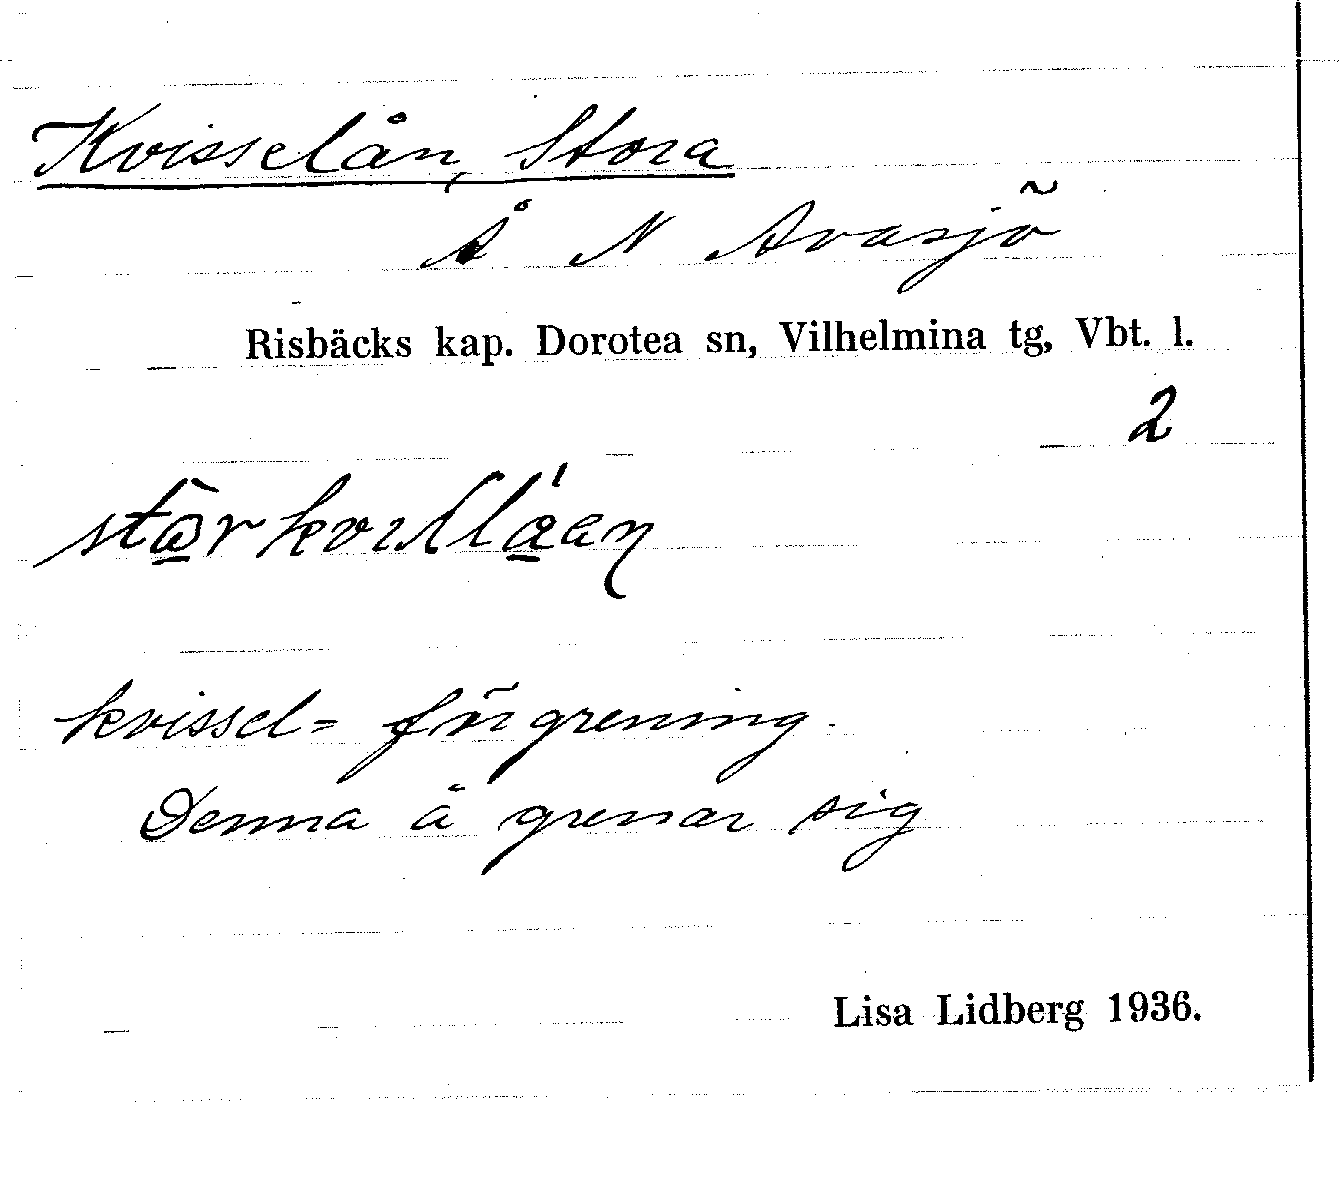 Kvisselån, Stora
Å N Avasjö
Risbäcks kap. Dorotea sn, Vilhelmina tg, Vbt. l.
2
kvissel = förgrening.
Denna å grenar sig
Lisa Lidberg 1936.